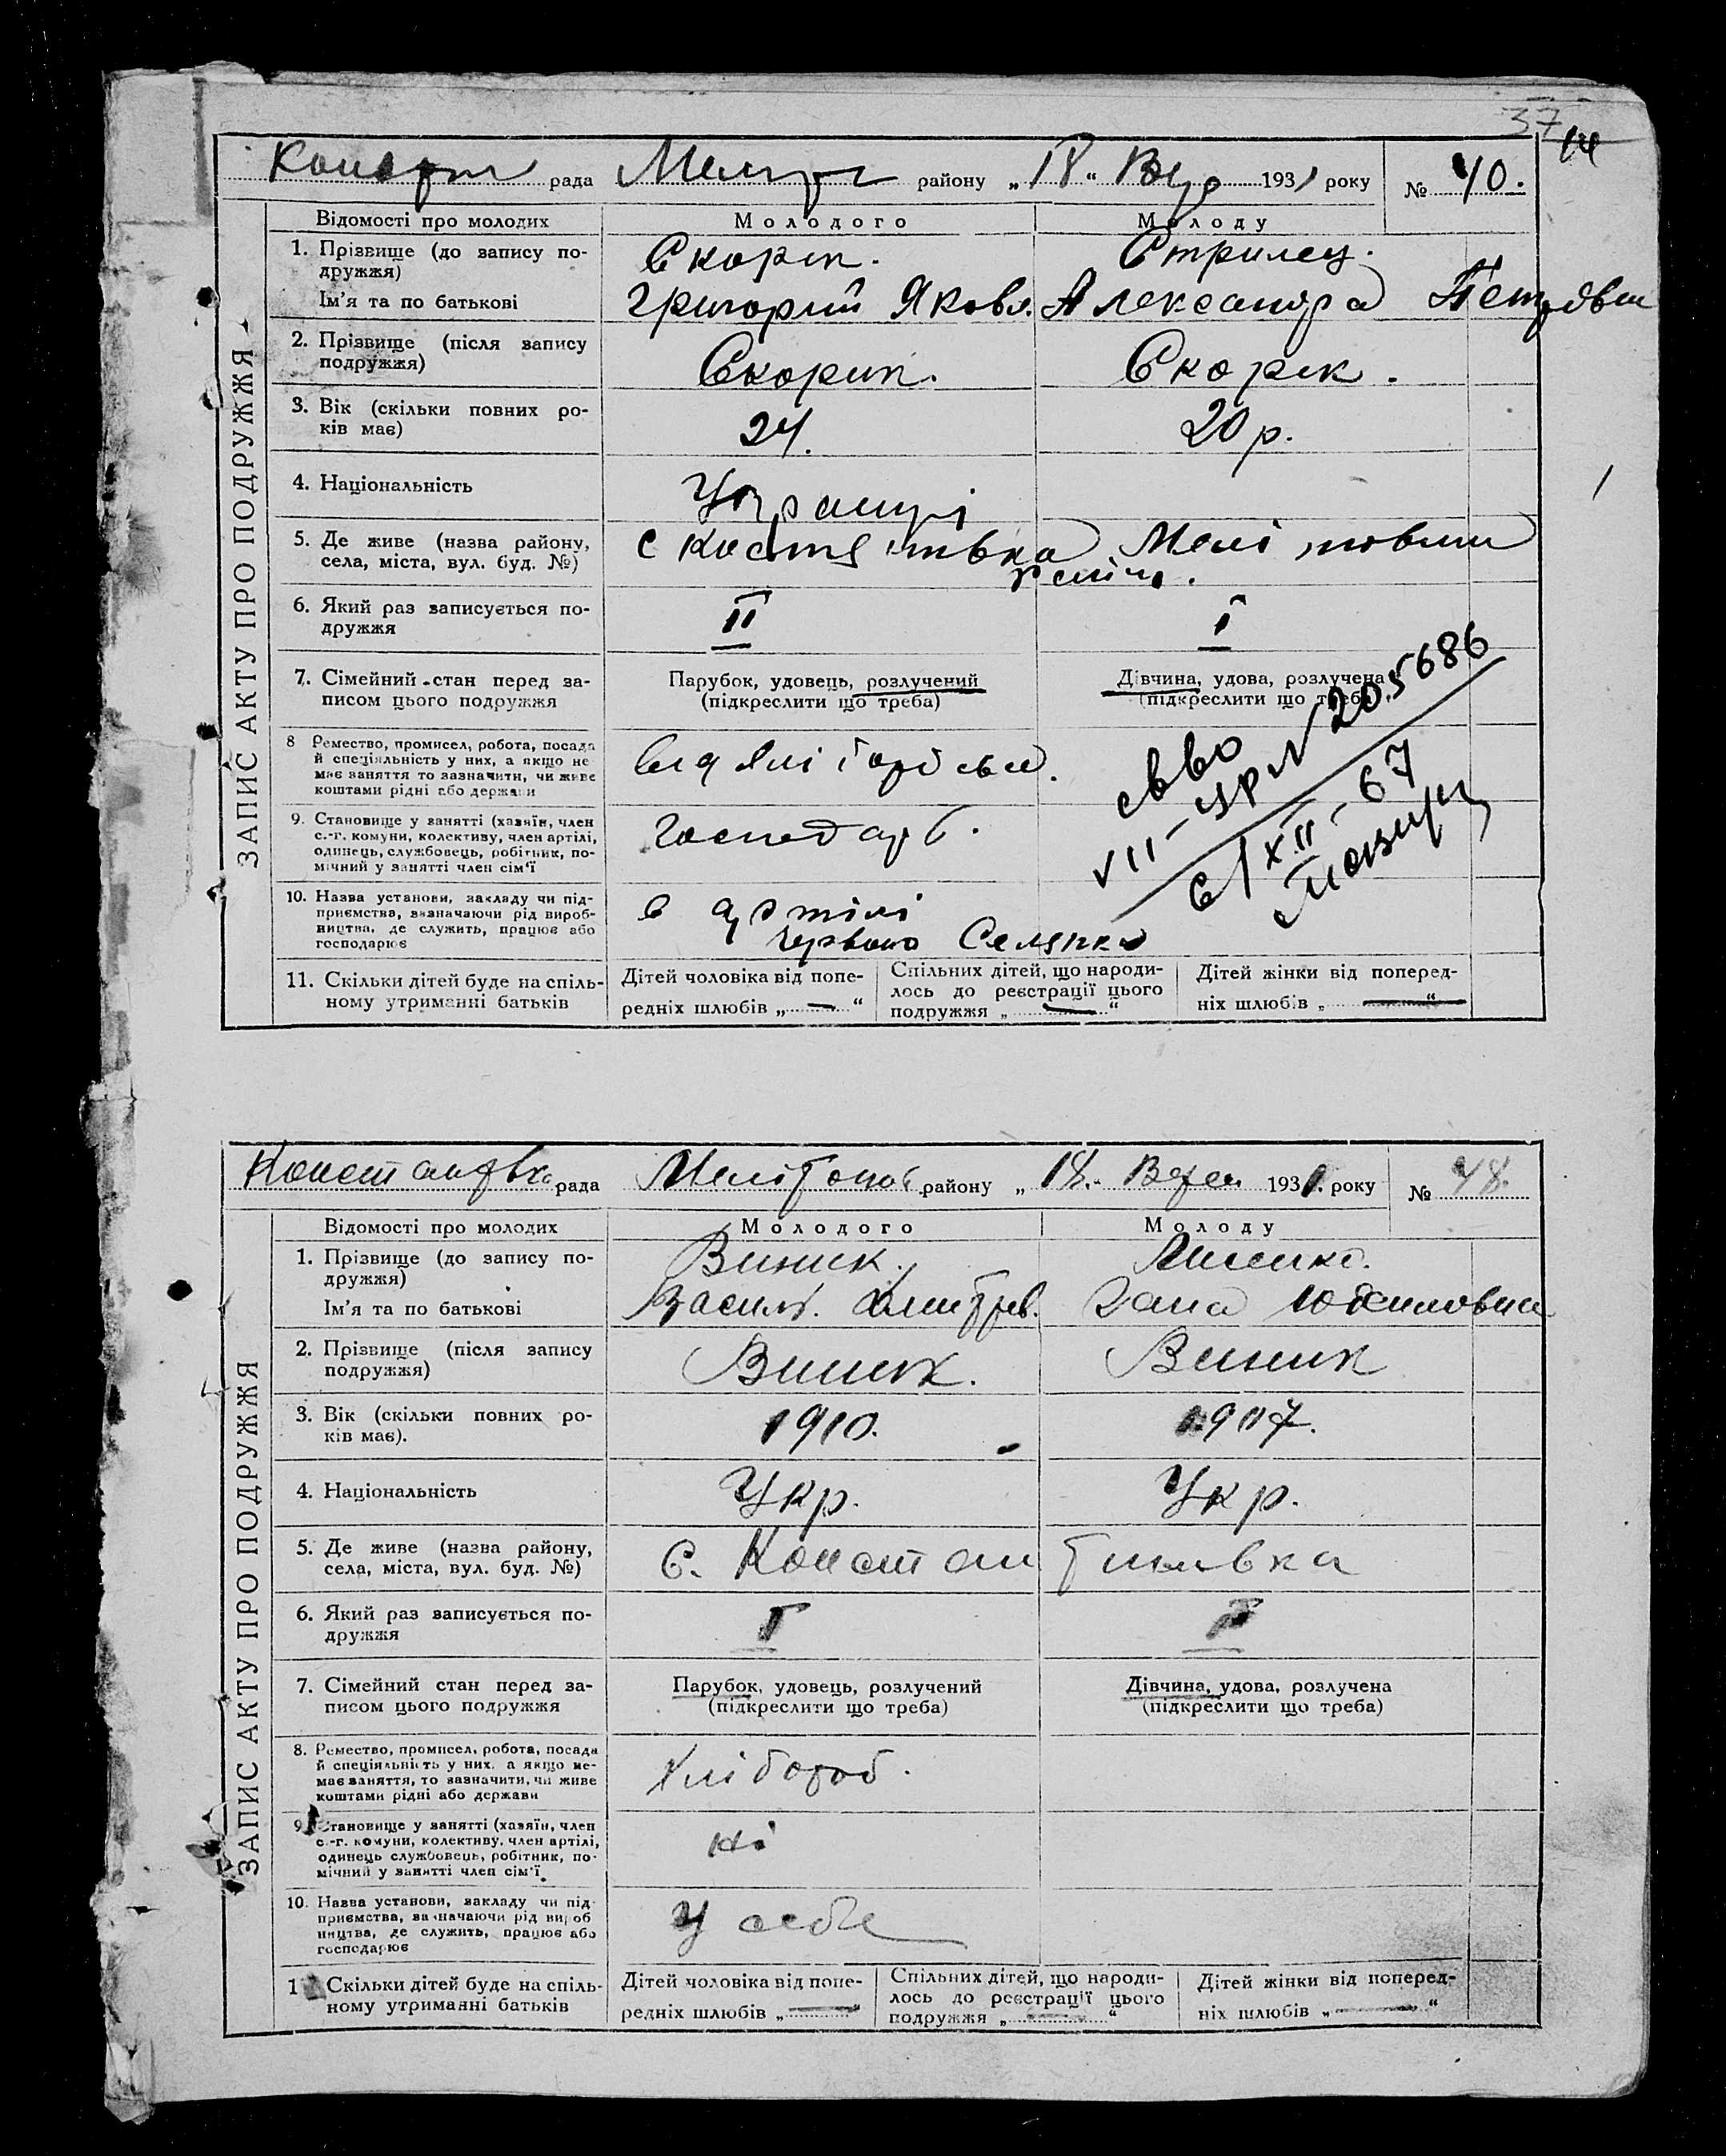 37
рада району „18“ 1931 року № 40.
ЗАПИС АКТУ ПРО ПОДРУЖЖЯ
Відомості про молодих Молодого Молоду
1. Прізвище (до запису по- Скорик. Стрилец.
дружжя)
Ім'я та по батькові Григорий Яковл. Александра Петровна
2. Прізвище (після запису Скорик. Скорик.
подружжя)
3. Вік (скільки повних ро- 24. 20 р.
ків має)
4. Національність Українці
5. Де живе (назва району, с
села, міста, вул. буд. №)
6. Який раз записується по- II I
дружжя
7. Сімейний стан перед за- Парубок, удовець, розлучений Дівчина, удова, розлучена
писом цього подружжя (підкреслити що треба) (підкреслити що треба)
8 Ремество, промисел, робота, посада
й спеціяльність у них, а якщо не
має заняття то зазначити, чи живе
коштами рідні або держави
9. Становище у занятті (хазяїн, член
с.-г. комуни, колективу, член артілі,
одинець, службовець, робітник, по-
мічний у занятті член сім'ї
10. Назва установи, закладу чи під- в артілі
приємства, зазначаючи рід вироб- Червона Селянка
ництва, де служить, працює або
господарює
свво
VII-УР № 205686
6/XII-67
11. Скільки дітей буде на спіль- Дітей чоловіка від попе- Спільних дітей, що народи- Дітей жінки від поперед-
ному утриманні батьків редніх шлюбів „—“ лось до реєстрації цього ніх шлюбів „—“
подружжя „—“
рада району „18.“ 1931. року № 48.
ЗАПИС АКТУ ПРО ПОДРУЖЖЯ
Відомості про молодих Молодого Молоду
1. Прізвище (до запису по- Виник.
дружжя)
Ім'я та по батькові Василь.
2. Прізвище (після запису Виник. Виник
подружжя)
3. Вік (скільки повних ро- 1910. 1907.
ків має).
4. Національність Укр. Укр.
5. Де живе (назва району, с. Константинівка
села, міста, вул. буд. №)
6. Який раз записується по- I I
дружжя
7. Сімейний стан перед за- Парубок, удовець, розлучений Дівчина, удова, розлучена
писом цього подружжя (підкреслити що треба) (підкреслити що треба)
8. Ремество, промисел, робота, посада Хлібороб.
й спеціяльність у них, а якщо не-
має заняття, то зазначити, чи живе
коштами рідні або держави
9. Становище у занятті (хазяїн, член ні
с.-г. комуни, колективу, член артілі,
одинець службовець, робітник, по-
мічний у занятті член сім'ї
10. Назва установи, закладу чи під- У себе
приємства, зазначаючи рід вироб
ництва, де служить, працює або
господарює
1 Скільки дітей буде на спіль- Дітей чоловіка від попе- Спільних дітей, що народи- Дітей жінки від поперед-
ному утриманні батьків редніх шлюбів „—“ лось до реєстрації цього ніх шлюбів „—“
подружжя „—“